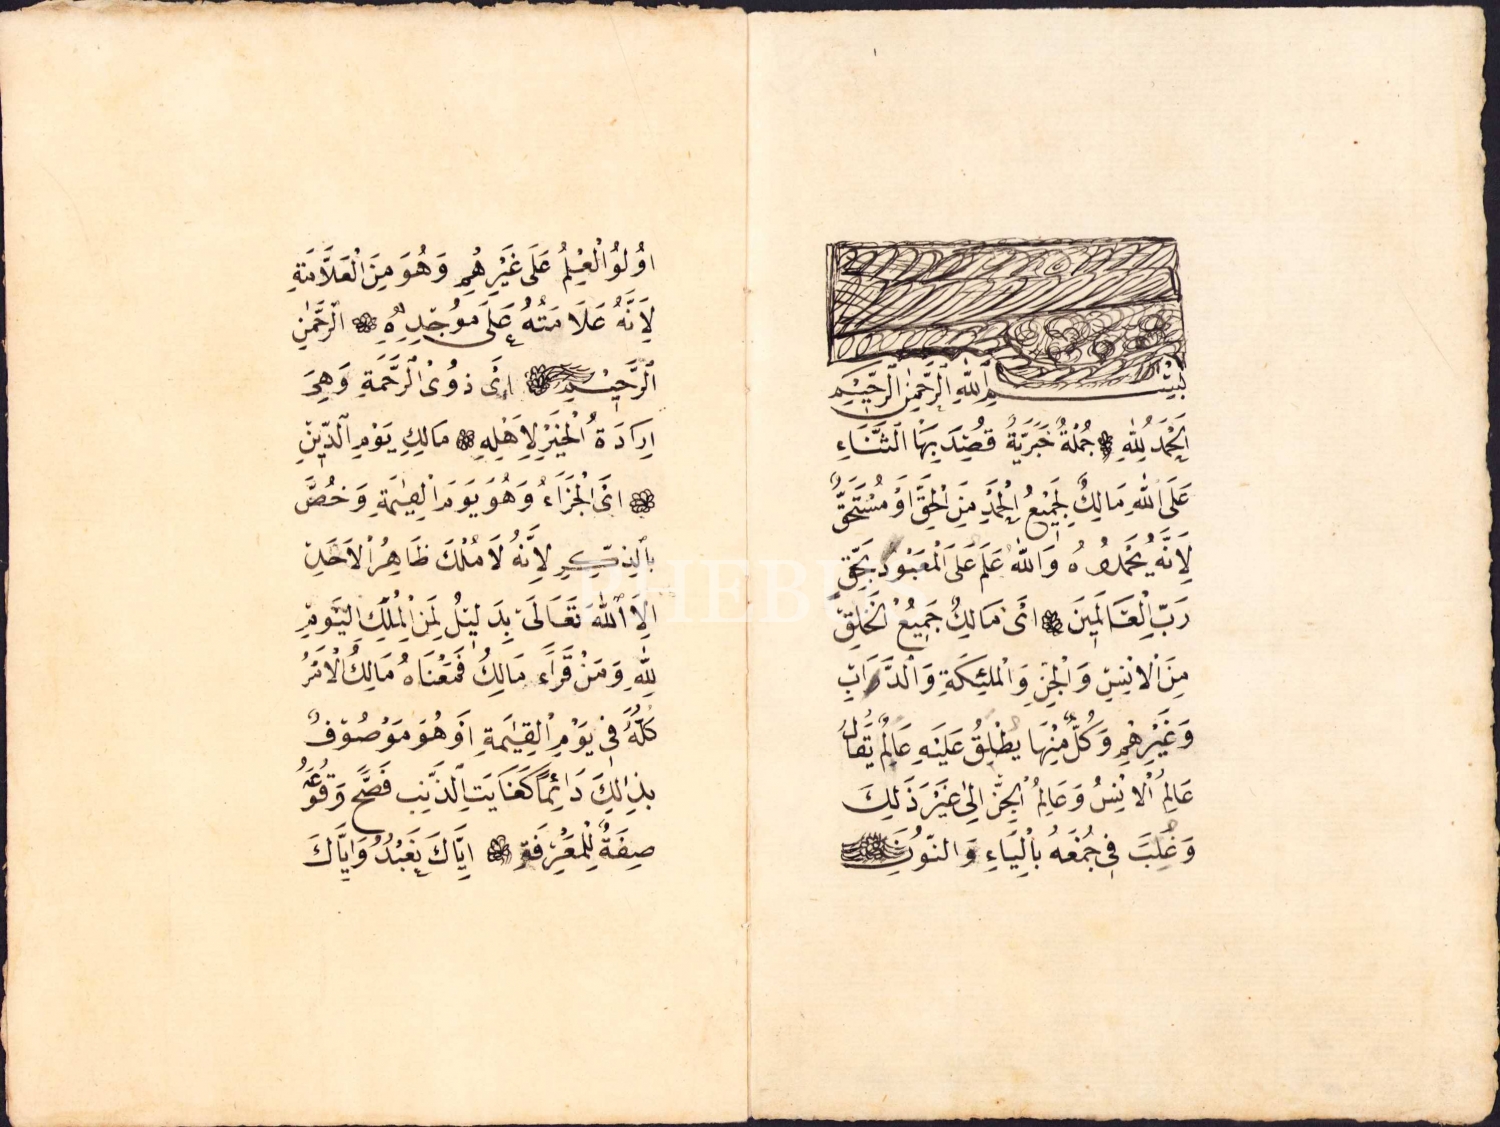 بِسْمِ ٱللّٰهِ ٱلرَّحْمٰنِ ٱلرَّحِيْمِ
اَلْحَمْدُ لِلّٰهِ جُمْلَةٌ خَبَرِيَّةٌ قُصِدَ بِهَا ٱلثَّنَاءِ
عَلَى اللّٰهِ مَالِكٌ لِجَمِيْعُ الْحَمْدِ مِنَ الْخَلْقِ اَوْ مُسْتَحَقٌّ
لِاَنَّهُ يَحْمَدُوهُ وَاللّٰهُ عَلَمٌ عَلَى الْمَعْبُوْدِ بِحَقٍّ
رَبِّ الْعَالَمِيْنَ اَىْ مَالِكُ جَمِيْعُ الْخَلْقِ
مِنَ الْاِنْسِ وَالْجِنِّ وَالْمَلٰئِكَةِ وَالدَّوَابِّ
وَغَيْرِهِمْ وَكُلٌّ مِنْهَا يُطْلِقُ عَلَيْهِ عَالِمٌ يُقَالُ
عَالِمُ الْاِنْسُ وَعَالِمُ الْجِنّ اِلٰى غَيْرَ ذَلِكَ
وَغُلِبَ فِى جُمْعَهُ بِالْيَاءِ وَالنُّوْنِ
اُولُوا الْعِلْمُ عَلَى غَيْرِهِمْ وَهُوَ مِنَ الْعَلَّامَةِ
لِاَنَّهُ عَلَامَتُهُ عَلَى مُوْجِدِهِ الرَّحْمٰنِ
ٱلرَّحِيْمِ اَىْ ذُوْىْ الرَّحْمَةِ وَهِىَ
اِرَادَةُ الْخَيْرِ لِاَهْلِهِ مَالِكِ يَوْمِ ٱلدِّيْنِ
اَىْ الْجَزَاءُ وَهُوَ يَوْمَ الْقِيٰمَةِ وَخُصَّ
بِالذِّكْرِ لِاَنَّهُ لَا مُلْكَ ظَاهِرُ الْاَحَدِ
اِلَّا اللّٰهُ تَعَالَى بِدَلِيْلُ لِمَنِ الْمُلْكِ الْيَوْمِ
لِلّٰهِ وَمَنْ قَرَاَءَ مَالِكُ فَمَعْنَاهُ مَالِكُ الْاَمْرُ
كُلُّهُ فِى يَوْمِ الْقِيٰمَةِ اَوْ هُوَ مَوْصُوْفٌ
بِذٰلِكَ دَائِمًا كَغَايَتِ الذَّنْبِ فَصَحَّ وَقُوْعُهُ
صِفَةٌ لِلْمَعْرِفَةِ اِيَّاكَ نَعْبُدُ وَاِيَّاكَ
PHEBUS